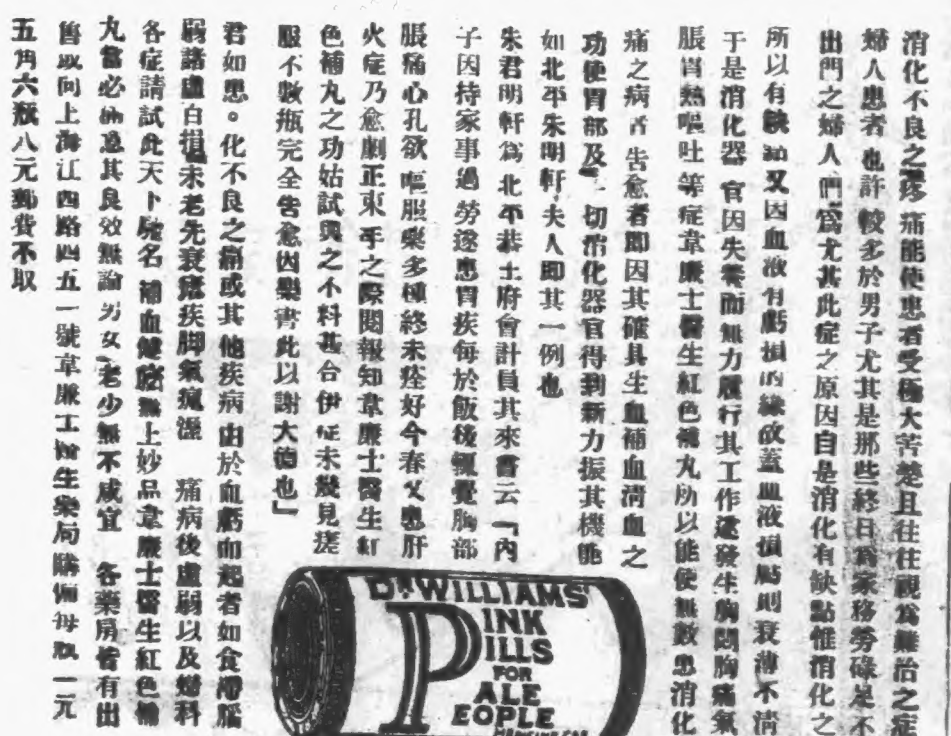 消化不良之疼痛能使患者受極大苦楚且往往視爲難治之症
婦人患者也許較多於男子尤其是那些終日爲家務勞碌足不
出門之婦人們爲尤甚此症之原因自是消化有缺點惟消化之
所以有缺點又因血液有虧損的緣故蓋血液損虧則衰薄不清
于是消化器官因失養而無力履行其工作遂發生胸悶胸痛氣
脹胃熱嘔吐等症韋廉士醫生紅色補丸所以能使無數患消化
痛之病者告愈者即因其確具生血補血清血之
功使胃部及一切消化器官得到新力振其機能
如北平朱明軒夫人即其一例也
朱君明軒爲北平恭王府會計員其來書云「內
子因持家事過勞遂患胃疾每於飯後輒覺胸部
脹痛心孔欲嘔服藥多種終未痊好今春又患肝
火症乃愈劇正束手之際閱報知韋廉士醫生紅
色補丸之功姑試與之不料甚合伊症未幾見瘥
服不數瓶完全告愈因樂書此以謝大德也」
君如患。化不良之痛或其他疾病由於血虧而起者如食滯腦
弱諸虛白損未老先衰瘧疾脚氣瘋濕 痛病後虛弱以及婦科
各症請試此天下馳名補血健腦無上妙品韋廉士醫生紅色補
丸當必納意其良效無論男女老少無不咸宜 各藥局皆有出
售或向上海江西路四五一號韋廉士醫生藥局購備每瓶一元
五角六瓶八元郵費不取
DR WILLIAMS'
PINK
PILLS
FOR
PALE
PEOPLE